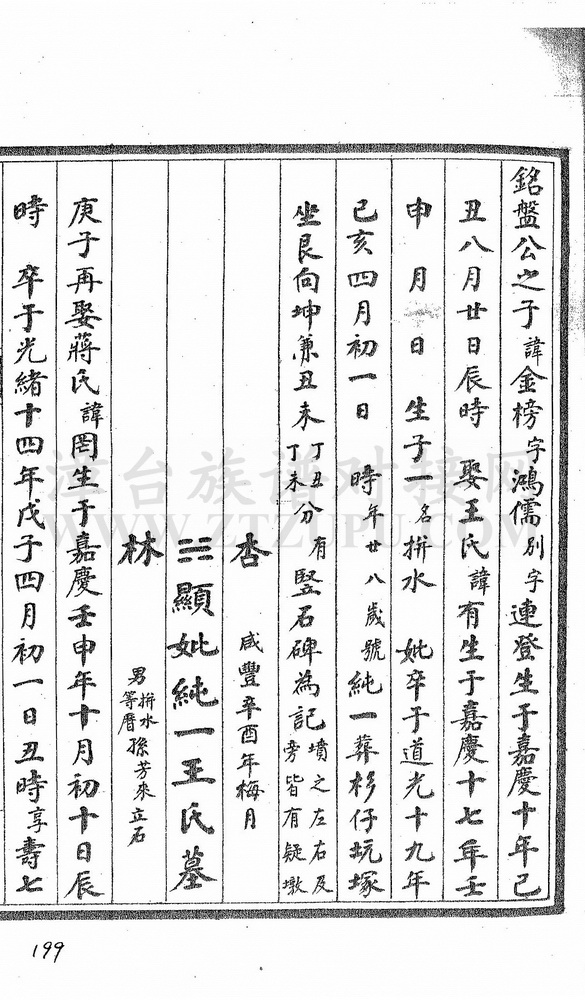 銘盤公之子諱金榜字鴻儒別字連登生于嘉慶十年己
丑八月廿日辰時 娶王氏諱有生于嘉慶十七年壬
申 月 日 生子一名拼水 妣卒于道光十九年
己亥四月初一日 時年廿八歲號純一葬杉仔坑塚
坐艮向坤兼丑未丁丑丁未分有豎石碑為記墳之左右及旁皆有疑墩
杏 咸豐辛酉年梅月
顯妣純一王氏墓
林 男拼水等曆孫芳來立石
庚子再娶蔣氏諱罔生于嘉慶壬申年十月初十日辰
時 卒于光緒十四年戊子四月初一日丑時享壽七
199
漳台族谱对接网
WWW.ZTZUPU.COM